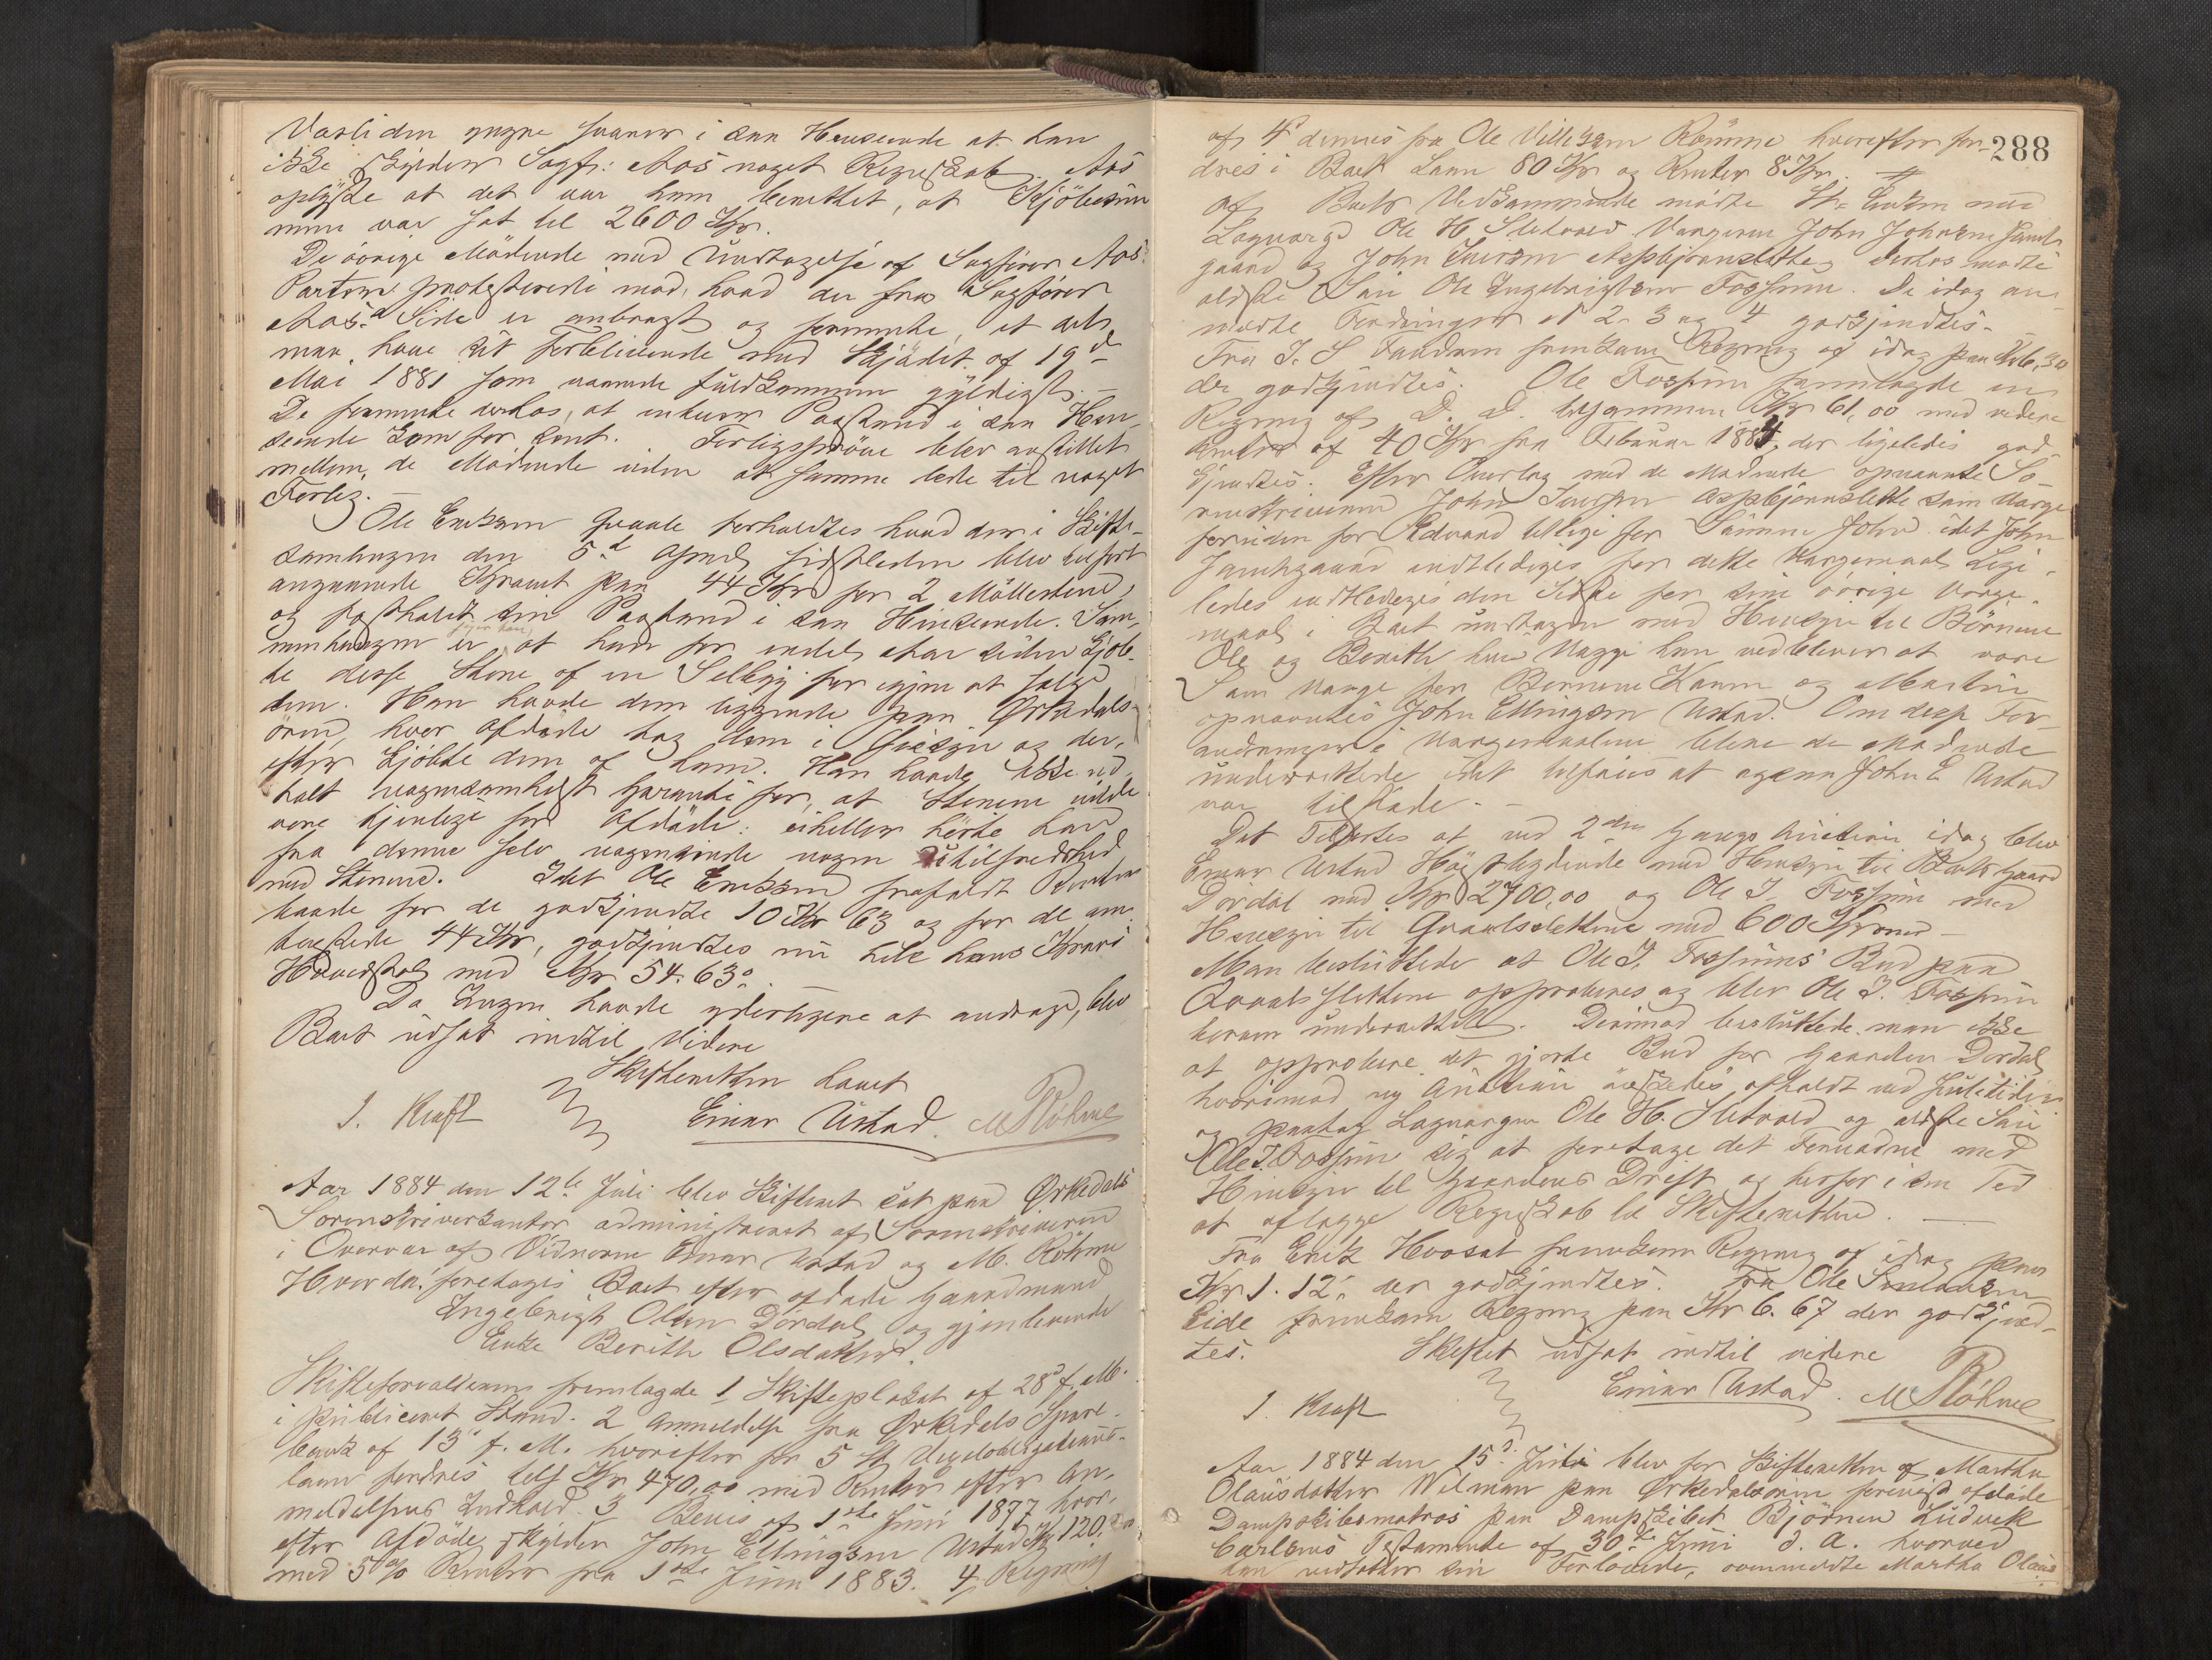 Vasliden svarer i den Henseende at han
ikke skylder Sagf: Aas noget Regnskab. Aas
oplyste at det var ham berettet, at Kjöbesum
men var sat til 2600 Kr.
De övrige Mödende med Undtagelse af Sagförer Aas'
Parter protesterede mod, hvad der fra Sagförer
Aas's Side er anbragt og formente, at det
maa have sit Forblivende med Skjödet af 19d
Mai 1881 som værende fuldkommen gyldigt. –
De formente derhos, at enhver Paastand i den Hen-
seende kom for sent. Forligspröve blev anstillet
mellem de Mödende uden at samme ledte til noget
Forlig. –
Ole Eriksen Qvaale foreholdtes hvad der i Skifte-
samlingen den 5te April sidstleden blev tilfört
angaaende Kravet paa 44 Kr for 2 Möllestene,
og fastholdt sin Paastand i den Henseende. Sam-
menhængen er siger han, at han for endel Aar siden kjöb-
te disse Stene af en Selbygg for igjen at sælge
dem. Han havde dem liggende paa Ørkedals-
ören, hvor Afdöde tog dem i Øiesyn og der-
efter kjöbte dem af ham. Han havde ikke ved-
talt nogensomhelst Garanti for, at Stenene vilde
være tjenlige for Afdöde: eiheller hörte han
fra denne selv nogensinde nogen Utilfredshed
med Stenene. Idet Ole Eriksen frafaldt Renter
baade for de godkjendte 10 Kr 63 og for de om-
tvistede 44 Kr, godkjendtes nu hele hans Kravs
Hovedstol med Kr 54.63.
Da Ingen havde yderligere at andrage, blev
Boet udsat indtil Videre
Skifteretten hævet
I. Kraft Einar Ustad. M Röhme
Aar 1884 den 12te Juli blev Skifteret sat paa Ørkedals
Sorenskriverkontor administreret af Sorenskriveren
i Overvær af Vidnerne Einar Ustad og M. Röhme
Hvorda: foretoges Boet efter afdöde Gaardmand
Ingebrigt Olsen Dördal og gjenlevende
Enke Berith Olsdatter.
Skifteforvalteren fremlagde 1 Skifteplakat af 28d f. M.
i publiceret Stand. 2 Anmeldelse fra Ørkedals Spare-
bank af 13d f. M. hvorefter for 5 St
laan fordres tils Kr 470,00 med Renter efter An-
meldelsens Indhold. 3 Bevis af 1ste Juni 1877 hvor-
efter Afdöde skylder John Ellingsen Ustad Kr 120.00
med 5 % Renter fra 1ste Juni 1883. 4 Regning
288
af 4d dennes fra Ole Villiksen Römme hvorefter for-
dres i Boet Laan 80 Kr og Renter 8 Kr.
Af Boets Vedkommende mödte St: Enken med
Laugværge Ole H Sletvold Værgerne John Johnsen
gaard og John Iversen Aspbjörnslette, derhos mödte
ældste Sön Ole Ingebrigtsen Fossum. De idag an-
mældte Fordringer No 2 – 3 og 4 godkjendtes. –
Fra I. S fremkom Regning af idag paa
der godkjendtes. Ole Fossum fremlagde en
Regning af D. D. tilsammen Kr 61,00 med videre
Renter af 40 Kr fra Februar 1884, der ligeledes god-
kjendtes. Efter Overlæg med de Mödende opnævnte So-
renskriveren John Iversen Aspbjörnslette som Værge
foruden for Edvard tillige for Sönnen John idet John
entlediges for dette Værgemaal. Lige-
ledes entlediges den Sidste for sine övrige Værge-
maal i Boet undtagen med Hensyn til Börnene
Ole og Berith hvis Værge han vedbliver at være
Som Værge for Börnene Karen og Martin
opnævntes John Ellingsen Ustad. Om disse For-
andringer i Værgemaalene bleve de Mödende
underrettede idet tilföies at ogsaa John E Ustad
var tilstede. –
Det Tilförtes at ved 2den Gangs Auktion idag blev
Einar Ustad Höistbydende med Hensyn til Boets Gaard
Dördal med Kr 2700,00 og Ole I. Fossum med
Hensyn til Qvaalsslettene med 600 Kroner –
Man besluttede at Ole I. Fossums Bud paa
Qvaalsslettene approberes og blev Ole I. Fossum
herom underrettet. Derimod besluttede man ikke
at approbere det gjorte Bud for Gaarden Dördal
hvorimod ny Auktion önskedes afholdt ved Juletider
og paatog Laugværgen Ole H. Sletvold og ældste Sön
Ole I. Fossum sig at foretage det Fornödne med
Hensyn til Gaardens Drift og herfor i sin Tid
at aflægge Regnskab til Skifteretten. –
Fra Erik Hoosat fremkom Regning af idag paa
Kr 1.12: der godkjendtes. Fra Ole
Eide fremkom Regning paa Kr 6.67 der godkjend-
tes. Skiftet udsat indtil videre
I. Kraft Einar Ustad. M Röhme
Aar 1884 den 15d Juli blev for Skifteretten af Martha
Olausdatter Wilman paa Ørkedalsören forevist afdöde
Dampskibsmatros paa Dampskibet Björnen Ludvik
Carlsens Testamente af 30te Juni d. A. hvorved
han indsætter sin Forlovede, ovenmeldte Martha Olaus